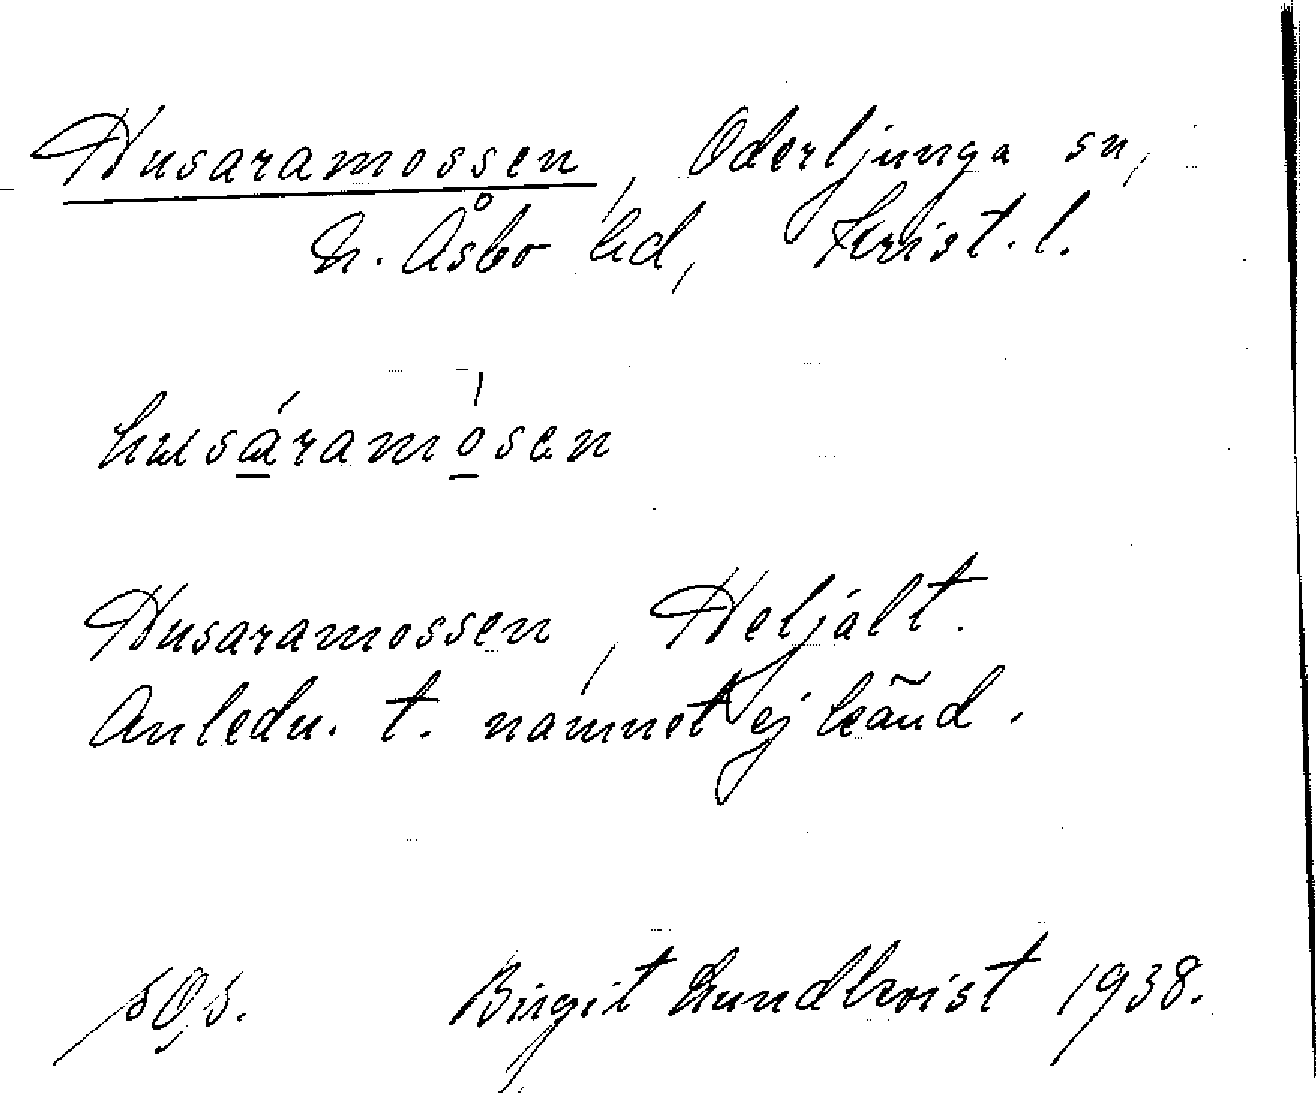 Husaramossen, Oderljunga sn,
N. Åsbo hd, Krist. l.
husáramósen
Husaramossen, Heljalt.
Anledn. t. namnet ej känd.
Birgit Lundkvist 1938.